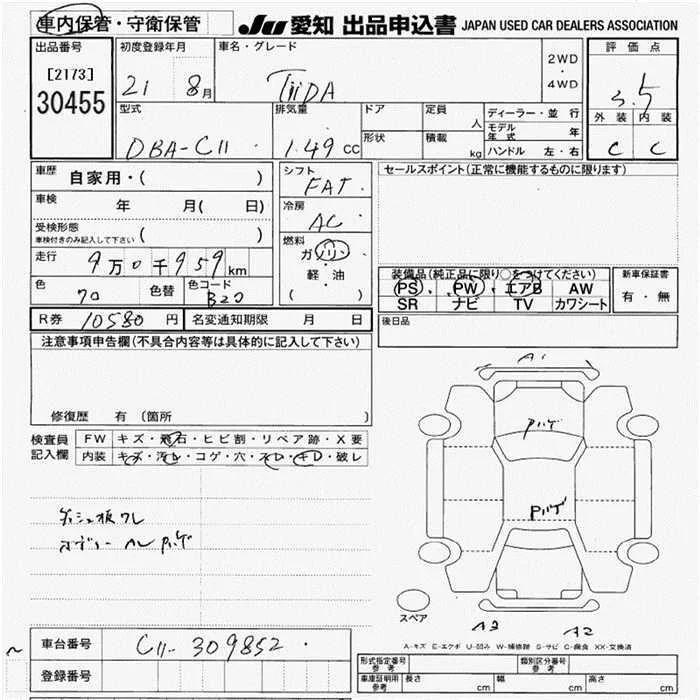 車内保管・守衛保管 JU 愛知 出品申込書 JAPAN USED CAR DEALERS ASSOCIATION
出品番号 初度登録年月 車名・グレード 評価点
[2173] 21 8月 TIIDA 2WD ・ 4WD 3.5
30455
型式 排気量 ドア 定員 人 ディーラー・並行 外装 内装
DBA-C11 1.49 CC 形状 積載 kg モデル年式 年 C C
ハンドル 左・右
車歴 自家用・( ) シフト FAT セールスポイント(正常に機能するものに限ります)
車検 年 月( 日) 冷房 AC
受検形態 ( )
車検付きのみ記入して下さい
走行 9万0千959km 燃料 ガソリン ・ 軽・油 ( ) 装備品(純正品に限り○をつけてください) 新車保証書
色 色替 色コード B20 PS PW エアB AW 有・無
SR ナビ TV カワシート
R券 10580 円 名変通知期限 月 日 後日品
注意事項申告欄(不具合内容等は具体的に記入して下さい)
A1
Pハゲ
修復歴 有 (箇所 )
検査員 FW キズ・飛石・ヒビ割・リペア跡・X要
記入欄 内装 キズ・汚レ・コゲ・穴・スレ・キレ・破レ
Pハゲ
ダッシュ板ワレ
ボディー AL Pハゲ
スペア
A3 A2
車台番号 C11-309852
A-キズ E-エクボ U-凹み W-補修跡 S-サビ C-腐食 XX-交換済
登録番号 型式指定番号 参考 類別区分番号 参考
車庫証明用 参考 長さ cm 幅 cm 高さ cm